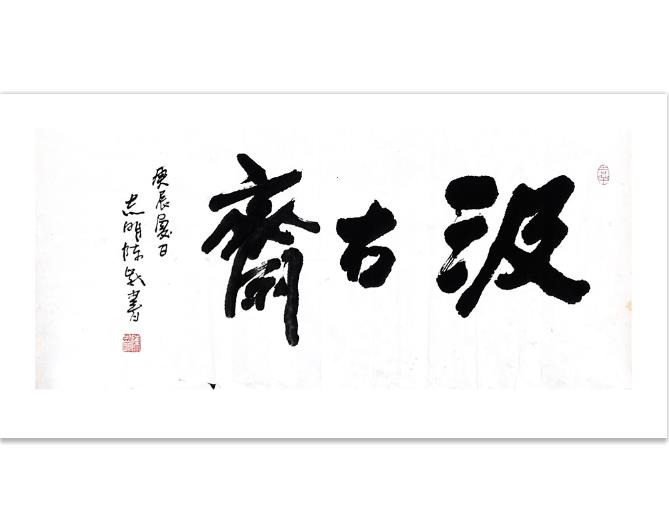 汲古齋
庚辰夏日
志明陈書